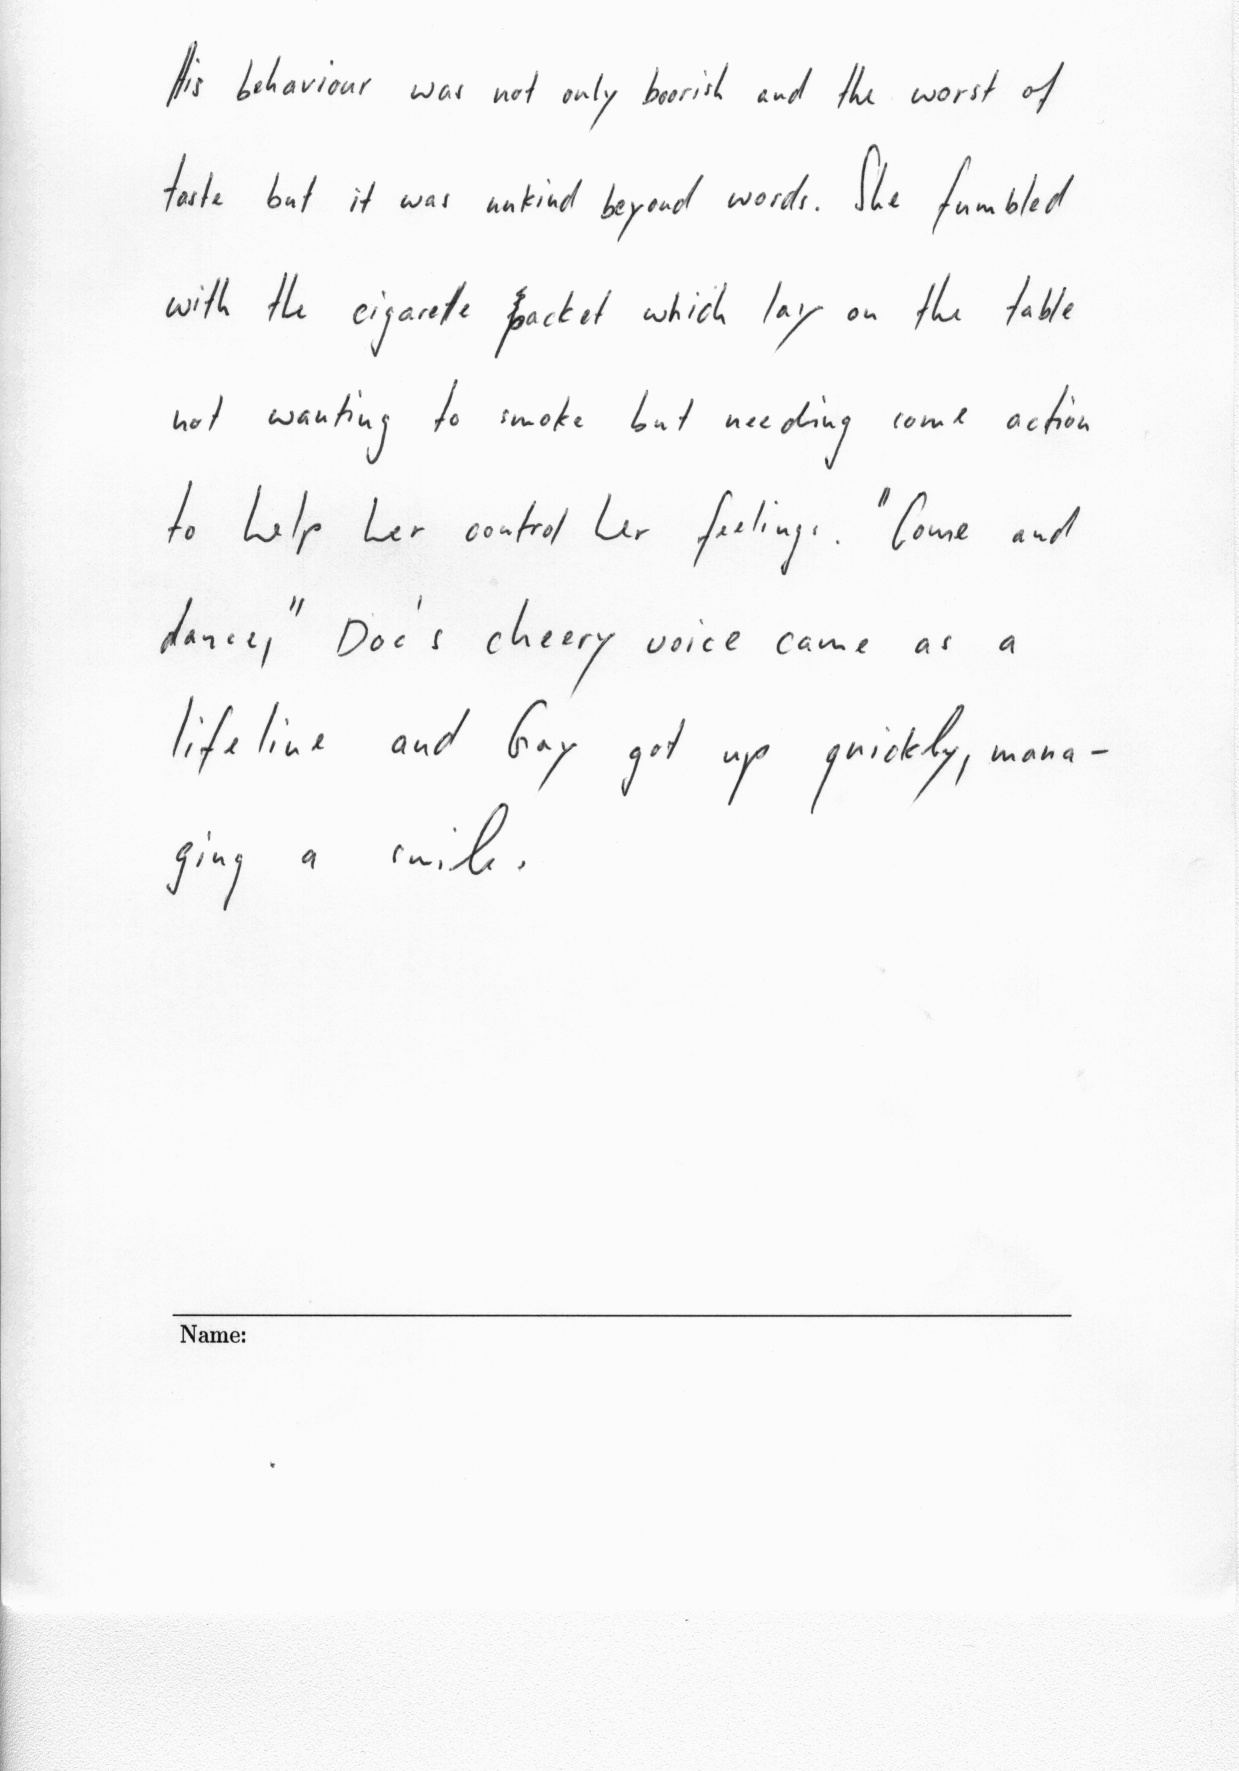 His behaviour was not only boorish and the worst of
taste but it was unkind beyond words. She fumbled
with the cigarette packet which lay on the table
not wanting to smoke but needing some action
to help her control her feelings. "Come and
dance," Doc's cheery voice came as a
lifeline and Gay got up quickly, mana-
ging a smile.
Name: